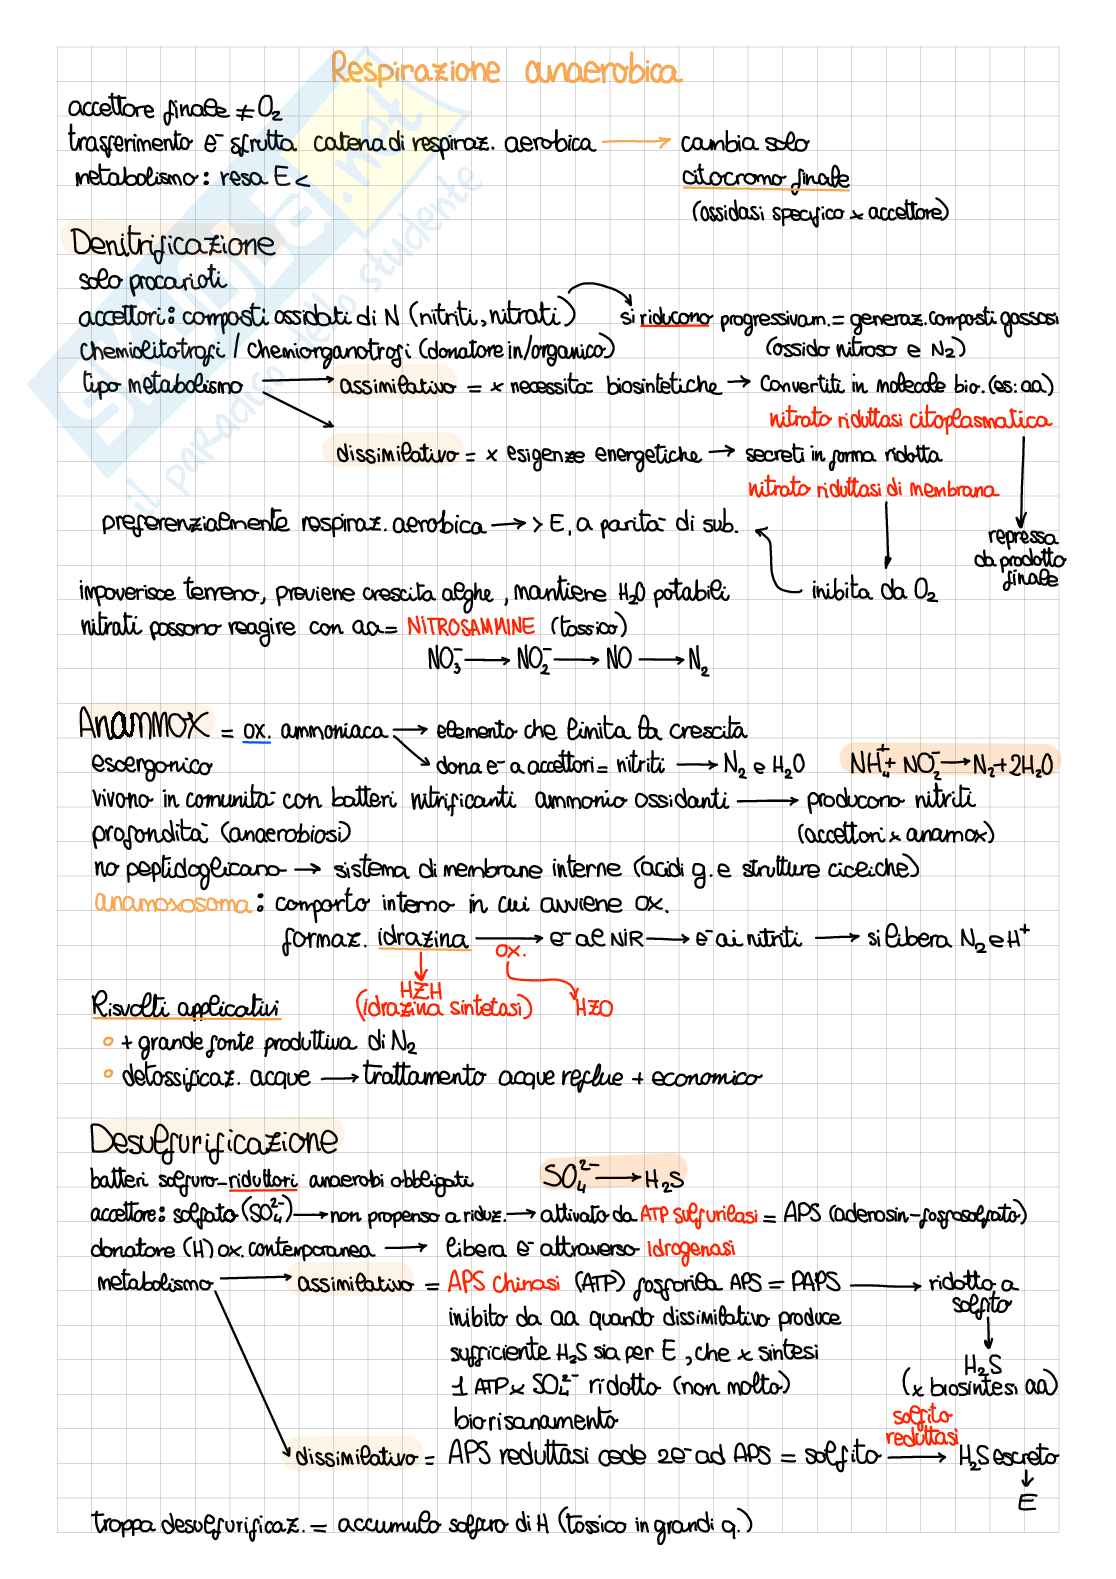 Respirazione anaerobica
accettore finale ≠ O₂
trasferimento e⁻ sfrutta catena di respiraz. aerobica → cambia solo
metabolismo: resa E < citocromo finale
(ossidasi specifico x accettore)
Denitrificazione
solo procarioti
accettori: composti ossidati di N (nitriti, nitrati) si riducono progressivam. = generaz. composti gassosi
Chemiolitotrofi / Chemiorganotrofi (donatore in/organico) (ossido nitroso e N₂)
tipo metabolismo → assimilativo = x necessità biosintetiche → Convertiti in molecole bio. (es: aa)
nitrato riduttasi citoplasmatica
dissimilativo = x esigenze energetiche → secreti in forma ridotta
nitrato riduttasi di membrana
preferenzialmente respiraz. aerobica → > E, a parità di sub.
repressa
da prodotto
finale
impoverisce terreno, previene crescita alghe, mantiene H₂O potabili inibita da O₂
nitrati possono reagire con aa = NITROSAMMINE (tossico)
NO₃⁻ → NO₂⁻ → NO → N₂
Anammox = ox. ammoniaca → elemento che limita la crescita
esoergonico dona e⁻ a accettori = nitriti → N₂ e H₂O NH₄⁺ + NO₂⁻ → N₂ + 2H₂O
vivono in comunità con batteri nitrificanti ammonio ossidanti → producono nitriti
profondità (anaerobiosi) (accettori x anamox)
no peptidoglicano → sistema di membrane interne (acidi g. e strutture cicliche)
anamoxosoma: comporto interno in cui avviene ox.
formaz. idrazina → e⁻ al NIR → e⁻ ai nitriti → si libera N₂ e H⁺
ox.
HZH
(idrazina sintetasi) HZO
Risvolti applicativi
○ + grande fonte produttiva di N₂
○ detossificaz. acque → trattamento acque reflue + economico
Desulfurificazione
batteri solfuro-riduttori anaerobi obbligati SO₄²⁻ → H₂S
accettore: solfato (SO₄²⁻) → non propenso a riduz. → attivato da ATP sulfurilasi = APS (adenosin-fosfosolfato)
donatore (H) ox. contemporanea → libera e⁻ attraverso idrogenasi
metabolismo → assimilativo = APS chinasi (ATP) fosforila APS = PAPS → ridotto a
solfito
inibito da aa quando dissimilativo produce
sufficiente H₂S sia per E, che x sintesi
H₂S
1 ATP x SO₄²⁻ ridotto (non molto) (x biosintesi aa)
biorisanamento
solfito
reduttasi
dissimilativo = APS reduttasi cede 2e⁻ ad APS = solfito → H₂S escreto
E
troppa desulfurificaz. = accumulo solfuro di H (tossico in grandi q.)
SKUOLA.net
il paradiso dello studente